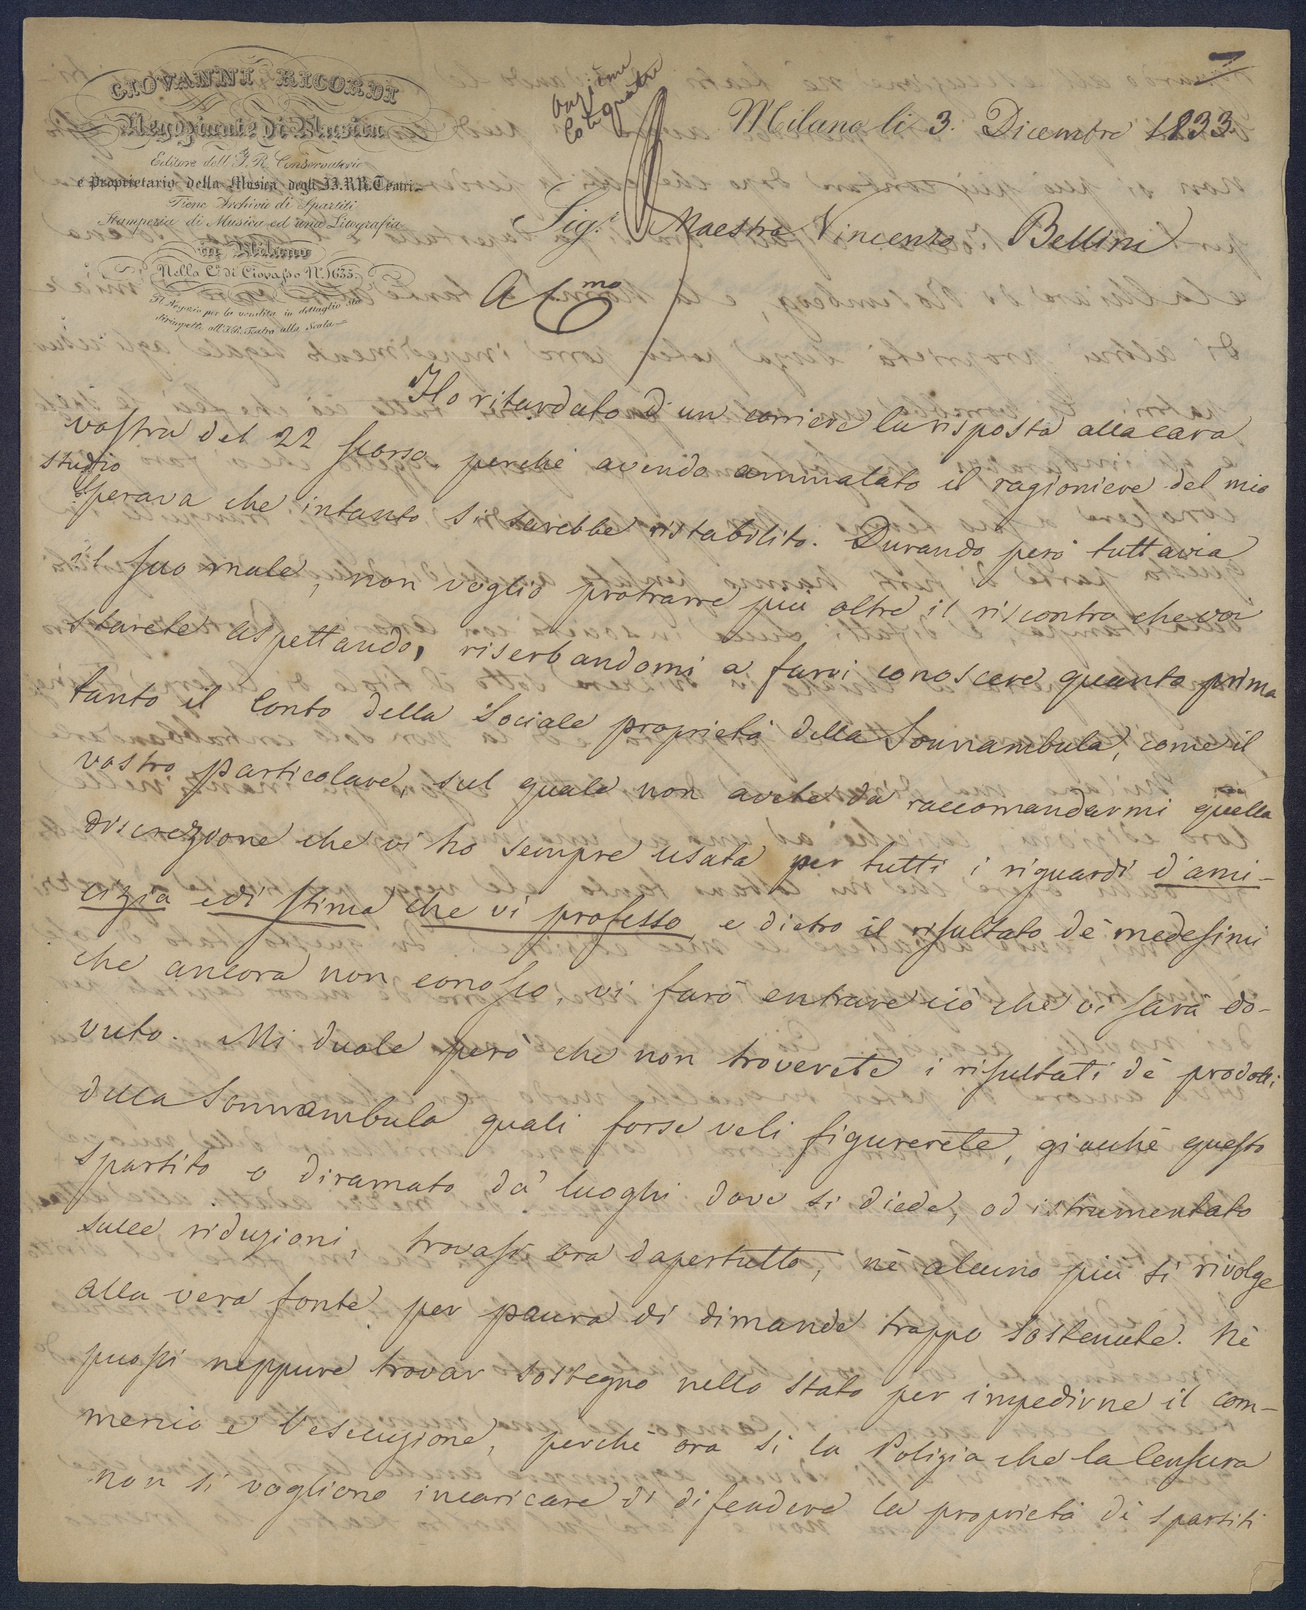 GIOVANNI RICORDI
Negoziante di Musica
Editore dell'I. R. Conservatorio
e Proprietario della Musica degli II. RR. Teatri
Tiene Archivio di Spartiti
Stamperia di Musica ed una Litografia
in Milano
Nella Ca. di Ciovasso N. 1635
Il Negozio per la vendita in dettaglio sta
dirimpetto all'I. R. Teatro alla Scala
Milano li 3. Dicembre 1833.
Sig.r Maestro Vincenzo Bellini
A C.mo
Ho ritardato d'un corriere la risposta alla cara
vostra del 22 scorso perchè avendo ammalato il ragioniere del mio
studio
sperava che intanto si sarebbe ristabilito. Durando però tuttavia
il suo male, non voglio protrarre più oltre il riscontro che voi
starete aspettando, riserbandomi a farvi conoscere quanto prima
tanto il Conto della Sociale proprietà della Sonnambula, come il
vostro particolare, sul quale non avete da raccomandarmi quella
discrezione che vi ho sempre usata per tutti i riguardi d'ami-
cizia e di stima che vi professo e dietro il risultato de' medesimi
che ancora non conosco, vi farò entrare ciò che vi sarà do-
vuto. Mi duole però che non troverete i risultati de' prodotti
della Sonnambula quali forse veli figurerete, giacchè questo
spartito o diramato da' luoghi dove si diede, od istrumentato
sulle riduzioni, trovasi ora dapertutto, nè alcuno più si rivolge
alla vera fonte per paura di dimande troppo sostenute. Nè
puossi neppure trovar sostegno nello Stato per impedirne il com-
mercio e l'esecuzione, perchè ora sì la Polizia che la Censura
non si vogliono incaricare di difendere la proprietà di spartiti